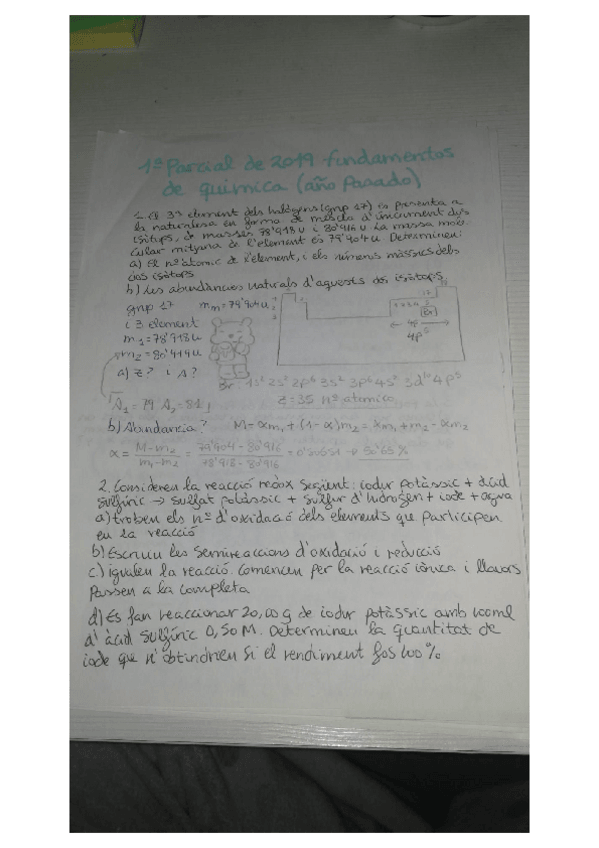 1º Parcial de 2019 fundamentos
de quimica (año pasado)
1. El 3r element dels halògens (grup 17) es presenta a
la naturalesa en forma de mescla d'
isòtops, de masses 78'918 u i 80'916 u La massa mole
cular mitjana de l'element és 79'904 u Determineu:
a) El nº atòmic de l'element, i els números màssics dels
dos isòtops
b) Les abundàncies naturals d'aquests dos isòtops
grup 17 mm = 79'904 u
i 3 element
m1 = 78'918 u
m2 = 80'914 u
a) Z? i A?
17
4p
4p5
Br: 1s² 2s² 2p⁶ 3s² 3p⁶ 4s² 3d¹⁰ 4p⁵
A1 = 79 A2 = 81
Z = 35 nº atomico
b) Abundancia? M = αm1 + (1 - α)m2 = αm1 + m2 - αm2
α = M - m2 / m1 - m2 = 79'904 - 80'916 / 78'918 - 80'916 = 50'65 %
2. Considereu la reacció redox següent: iodur potàssic + àcid
sulfúric → sulfat potàssic + sulfur d'hidrogen + iode + aigua
a) trobeu els nº d'oxidació dels elements que participen
en la reacció
b) Escriviu les semireaccions d'oxidació i reducció
c) igualeu la reacció. Comenceu per la reacció iònica i llavors
passeu a la completa
d) Es fan reaccionar 20,00 g de iodur potàssic amb 100ml
d'àcid sulfúric 0,50 M. Determineu la quantitat de
iode que n'obtindrieu si el rendiment fos 100 %